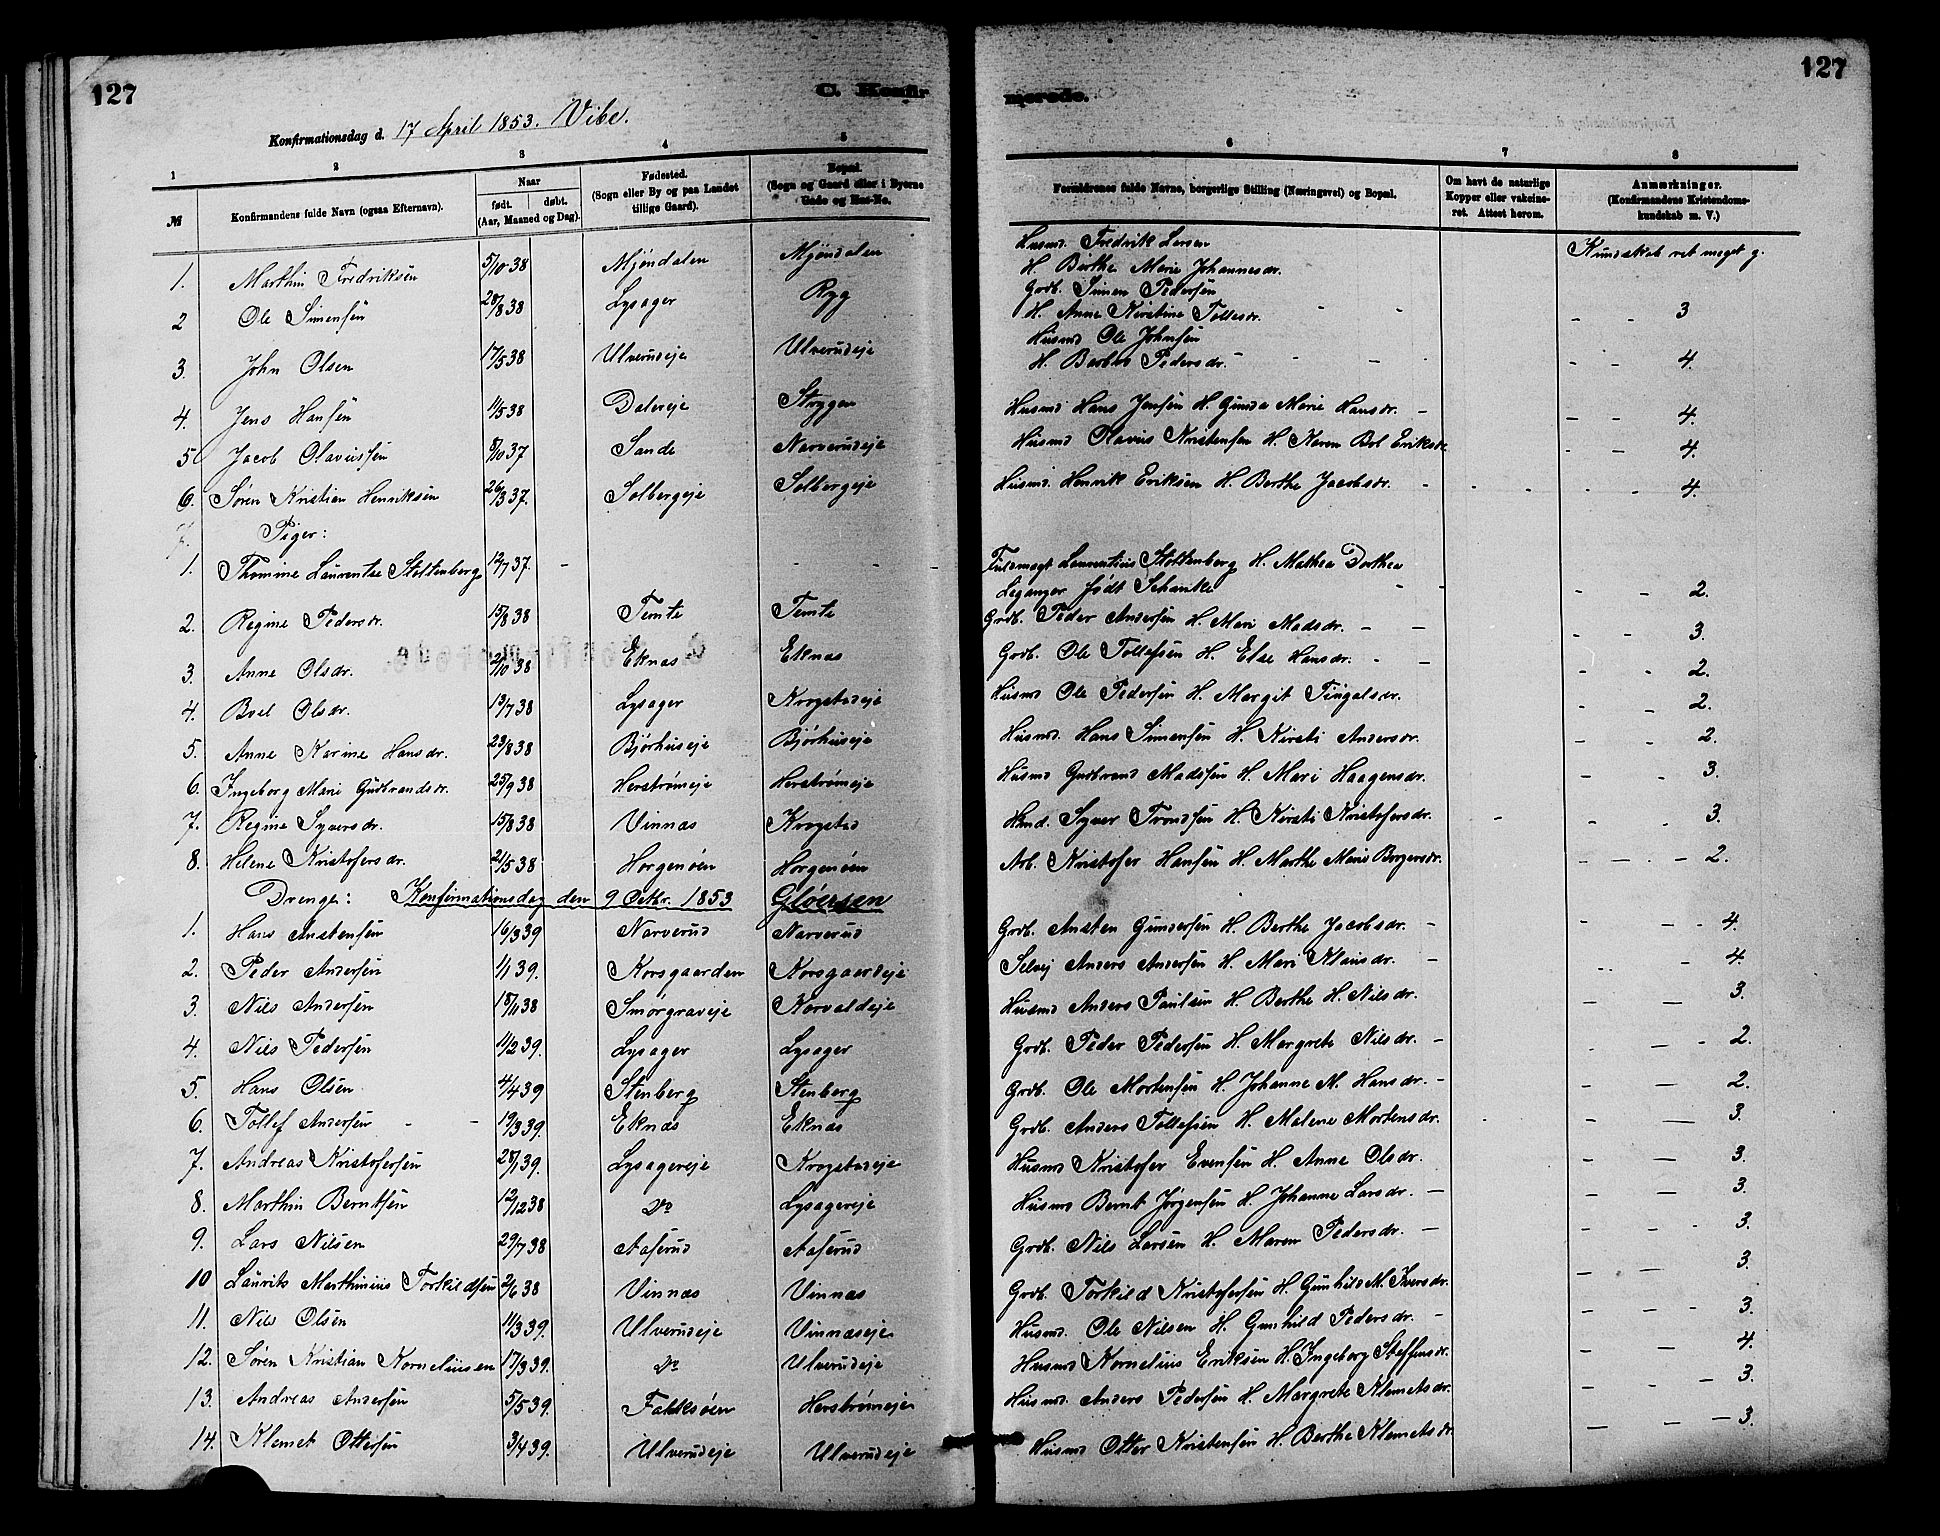 127
C. Konfirmerede.
127
Konfirmationsdag d. 17 April 1853. Vibe.
1 2 3 4 5 6 7 8
№ Konfirmandens fulde Navn (ogsaa Efternavn). Naar født. døbt. (Aar, Maaned og Dag). Fødested. (Sogn eller By og paa Landet tillige Gaard). Bopæl. (Sogn og Gaard eller i Byerne Gade og Hus-No. Forældrenes fulde Navne, borgerlige Stilling (Næringsvei) og Bopæl. Om havt de naturlige Kopper eller vakcineret. Attest herom. Anmærkninger. (Konfirmandens Kristendomskundskab m. V.)
1. Marthin Fredriksen 5/10 38 Mjøndalen Mjøndalen Husmd. Fredrik Larsen H. Birthe Marie Johannesdr. Kundskab ret meget g.
2 Ole Simensen 28/8 38 Lysager Ryg Grdb. Simen Pedersen H. Anne Kirstine Tollesdr. - - 3
3. John Olsen 17/5 38 Ulverudeje Ulverudeje Husmd Ole Johnsen H. Barbro Pedersdr. - - 4.
4. Jens Hansen 11/5 38 Dalereje Stryger Husmd Hans Jensen H. Gunda Marie Hansdr. - - 4.
5 Jacob Olavussen 8/10 37 Sande Narverudeje Husmd Olavus Kristensen H. Karen Bol Eriksdr - - 4.
6. Søren Kristian Henriksen 26/3 37. Solbergeje Solbergeje Husmd. Henrik Eriksen H. Berthe Jacobsdr. - - 4.
Piger:
1. Thomine Laurentze Stoltenberg 12/7 37. - - - - Fuldmægt Laurentius Stoltenberg H. Mathea Dorthea Leganger født Schanke - - 2.
2. Regine Pedersdr. 15/8 38 Temte Temte Grdb. Peder Andersen H. Mari Madsdr. - - 3.
3. Anne Olsdr. 2/10 38 Eknæs Eknæs Grdb. Ole Tollefsen H. Else Hansdr. - - 2.
4. Boel Olsdr. 13/7 38 Lysager Krogstadeje Husmd Ole Pedersen H. Margit Tingalsdr. - - 2.
5. Anne Karine Hansdr. 23/8 38 Bjørhuseje Bjørhuseje Husmd. Hans Simensen H. Kirsti Andersdr. - - 2.
6. Ingeborg Marie Gudbrandsdr. 25/9 38 Herstrømeje Herstrømeje Husmd Gudbrand Madssen H. Mari Haagensdr. - - 3.
7. Regine Syversdr. 15/8 38 Vinnæs Krogstad Hmd. Syver Trondsen H. Kirsti Kristofersdr. - - 3.
8. Helene Kristofersdr. 21/5 38 Horgenøen Horgenøen Arb. Kristofer Hansen H. Marthe Marie Borgersdr. - - 2.
Drenge: Konfirmationsdag den 9 Octbr. 1853 Gløersen
1. Hans Anstensen 16/3 39 Narverud Narverud Grdb. Ansten Gundersen H. Berthe Jacobsdr. - - 4.
2. Peder Andersen 1/1 39. Korsgaarden Korsgaardeje Selvej Anders Andersen H. Mari Klausdr. - - 4.
3. Nils Andersen 18/11 38 Smørgraveje Korvaldeje Husmd Anders Paulsen H. Berthe H. Nilsdr. - - 3.
4. Nils Pedersen 11/2 39. Lysager Lysager Grdb. Peder Pedersen H. Margrete Nilsdr. - - 2.
5. Hans Olsen 4/4 39 Stenberg Stenberg Grdb. Ole Mortensen H. Johanne M. Hansdr. - - 2.
6. Tollef Andersen 19/3 39. Eknæs Eknæs Grdb. Anders Tollefsen H. Malene Mortensdr. - - 3.
7. Andreas Kristofersen 28/1 39. Lysagereje Krogstadeje Husmd Kristofer Evensen H. Anne Olsdr. - - 3.
8. Marthin Berntsen 12/12 38 Do Lysagereje Husmd Bernt Jørgensen H. Johanne Larsdr. - - 3.
9. Lars Nilsen 29/7 38 Aaserud Aaserud Grdb. Nils Larsen H. Maren Pedersdr. - - 3.
10 Laurits Marthinius Torkildsen 2/6 38 Vinnæs Vinnæs Grdb. Torkild Kristofersen H. Gunhild M. Iversdr. - - 3.
11. Nils Olsen 11/3 39. Ulverudeje Vinnæseje Husmd. Ole Nilsen H. Gunhild Pedersdr. - - 3.
12. Søren Kristian Korneliusen 17/3 39. Do Ulverudeje Husmd Kornelius Eriksen H. Ingeborg Steffensdr. - 4.
13. Andreas Andersen 5/5 39. Falksøen Herstrømeje Husmd. Anders Pedersen H. Margrete Klemetsdr. - - 3.
14. Klemet Ottersen 3/4 39. Ulverudeje Ulverudeje Husmd Otter Kristensen H. Berthe Klemetsdr - - 3.